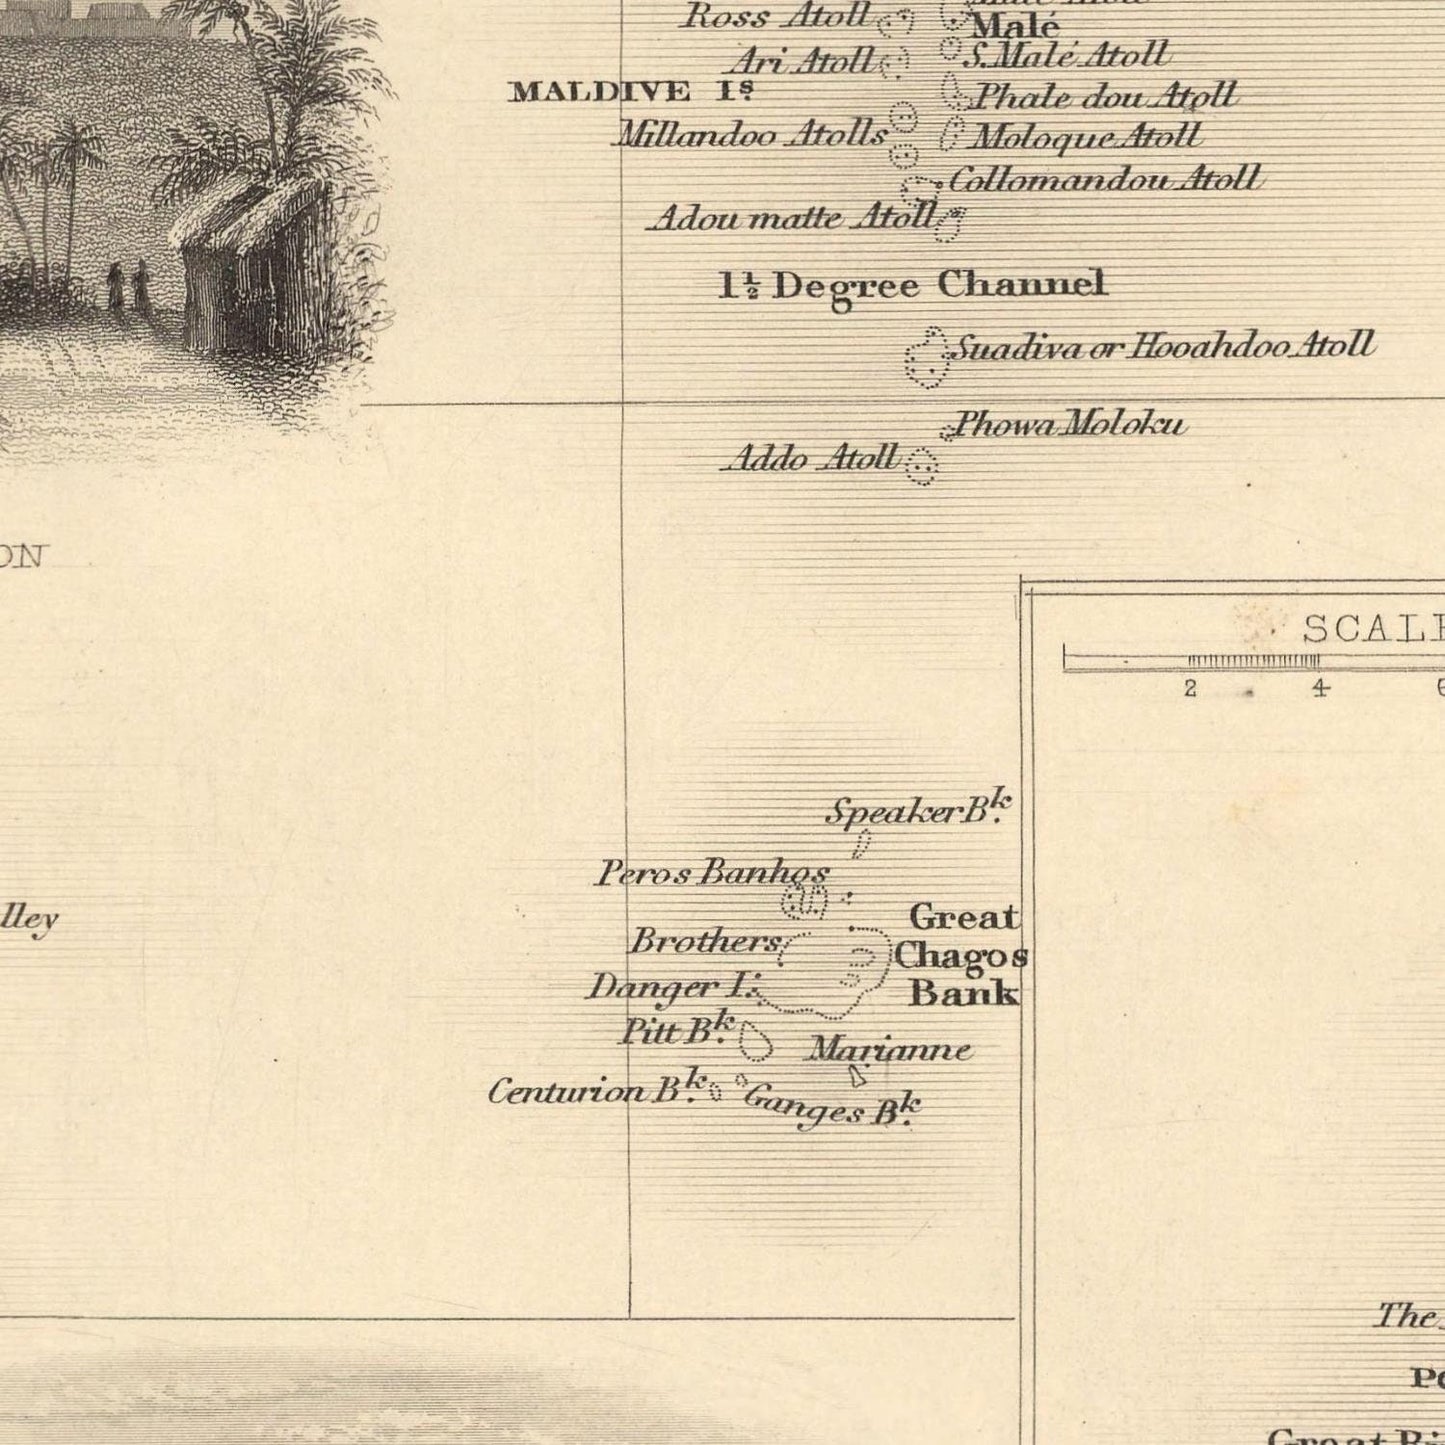 Ross Atoll
Malé
Ari Atoll
S. Malé Atoll
MALDIVE Is.
Phale dou Atoll
Millandoo Atolls
Moloque Atoll
Collomandou Atoll
Adou matte Atoll
1½ Degree Channel
Suadiva or Hooahdoo Atoll
Phowa Moloku
Addo Atoll
ON
SCALE
2 4 6
Speaker Bk.
Peros Banhos
lley
Great
Chagos
Bank
Brothers
Danger I.
Pitt Bk.
Marianne
Centurion Bk.
Ganges Bk.
The